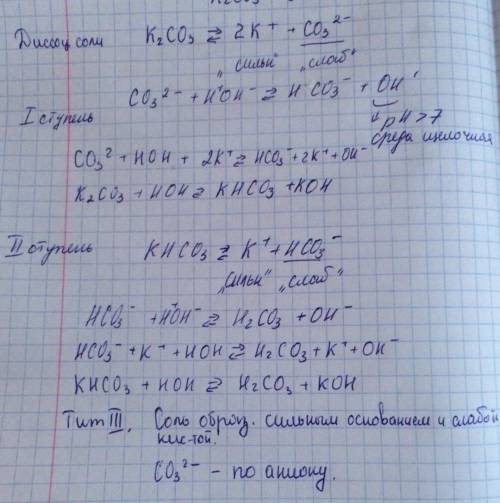 Диссоц. соли K₂CO₃ ⇄ 2K⁺ + CO₃²⁻
"сильн" "слаб"
I ступень CO₃²⁻ + H⁺OH⁻ ⇄ HCO₃⁻ + OH⁻
↓ pH > 7
среда щелочная
CO₃² + HOH + 2K⁺ ⇄ HCO₃⁻ + 2K⁺ + OH⁻
K₂CO₃ + HOH ⇄ KHCO₃ + KOH
II ступень KHCO₃ ⇄ K⁺ + HCO₃⁻
"сильн" "слаб"
HCO₃⁻ + H⁺OH⁻ ⇄ H₂CO₃ + OH⁻
HCO₃⁻ + K⁺ + HOH ⇄ H₂CO₃ + K⁺ + OH⁻
KHCO₃ + HOH ⇄ H₂CO₃ + KOH
Тип III. Соль образ. сильным основанием и слабой
кис-той.
CO₃²⁻ – по аниону.